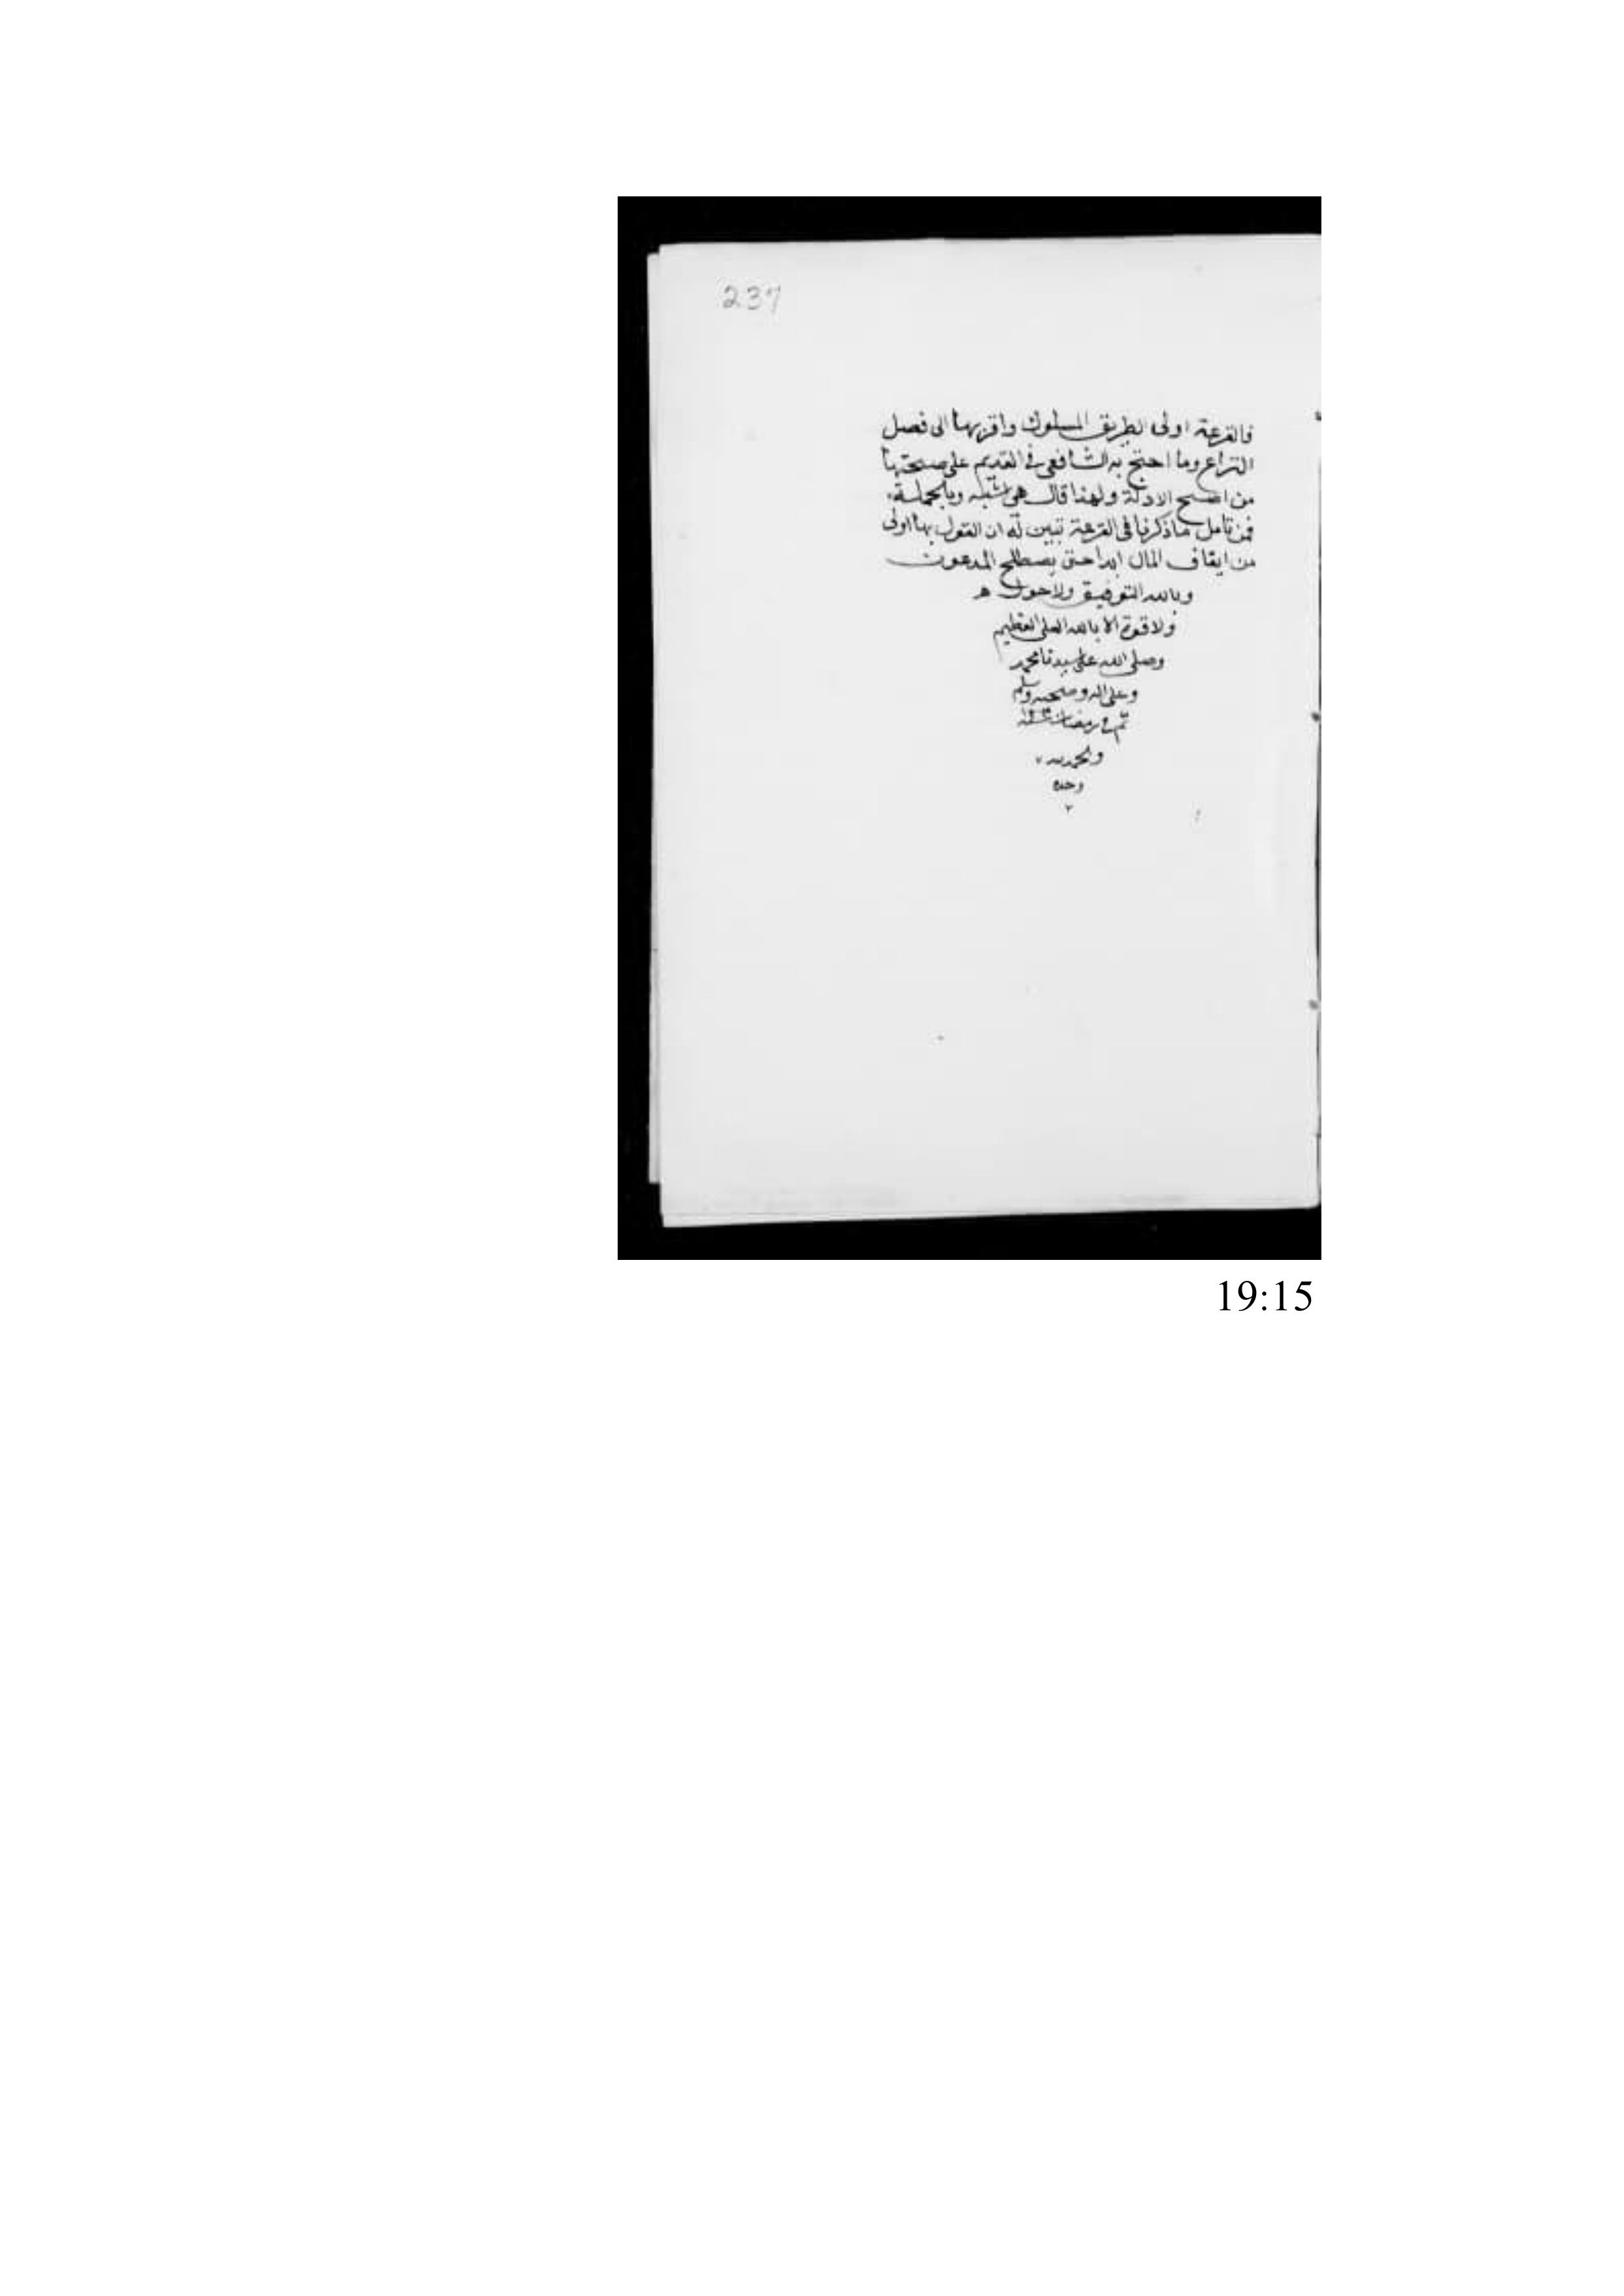 237
فالقرعة اولى الطريق المسلوك واقربها الى فصل
النزاع وما احتج به الشافعي في القديم على صحتها
من اصح الادلة ولهذا قال هي اشبه وبالجملة
فمن تامل ما ذكرنا في القرعة تبين له ان القول بها اولى
من ايقاف المال ابدا حتى يصطلح المدعون
وبالله التوفيق ولا حول ه
ولا قوة الا بالله العلي العظيم
وصلى الله على سيدنا محمد
وعلى اله وصحبه وسلم
تم في رمضان
والحمد لله
وحده
19:15